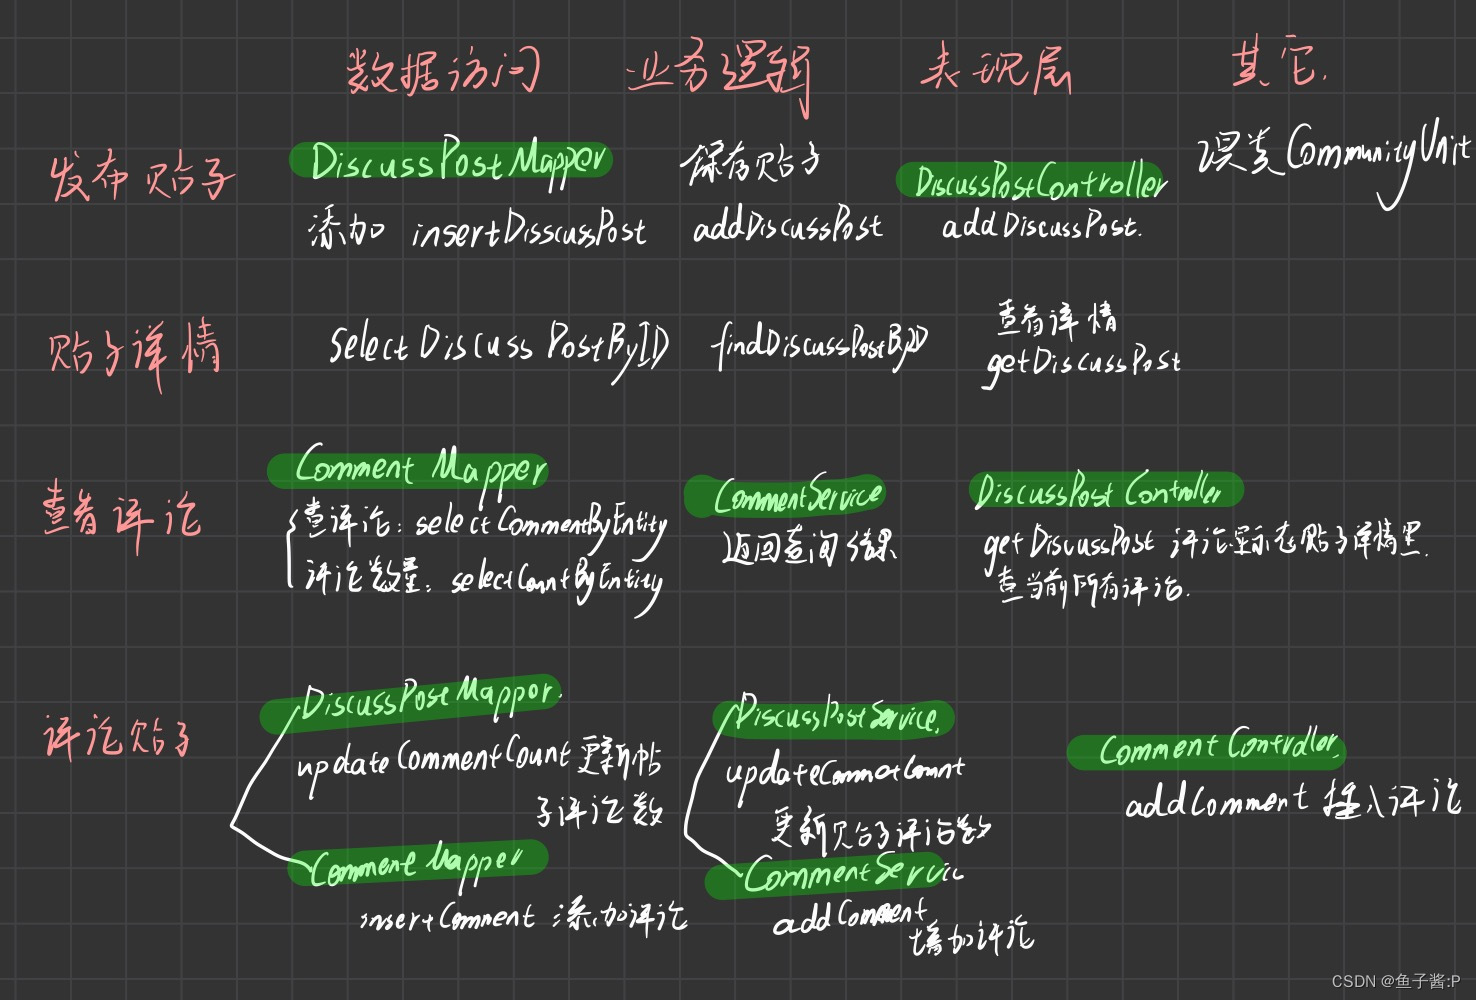 数据访问 业务逻辑 表现层 其它.
发布贴子 DiscussPostMapper 保存贴子 DiscussPostController 误类CommunityUnit
添加 insertDisscussPost addDiscussPost addDiscussPost.
贴子详情 selectDiscussPostByID findDiscussPostByID 查看详情
getDiscussPost
查看评论 CommentMapper CommentService DiscussPostController
查评论: selectCommentByEntity 返回查询结果 getDiscussPost 评论显示在贴子详情里.
评论数量: selectCountByEntity 查当前所有评论.
评论贴子 DiscussPostMappor. DiscussPostService. CommentController.
updateCommentCount 更新帖 updateCommotCount addComment 插入评论
子评论数 更新贴子评论数
CommentMapper CommentServic
insertComment 添加评论 addComment
增加评论
CSDN @鱼子酱:P